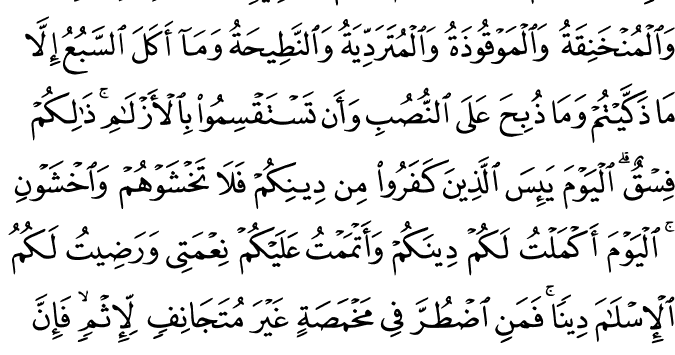 وَٱلْمُنْخَنِقَةُ وَٱلْمَوْقُوذَةُ وَٱلْمُتَرَدِّيَةُ وَٱلنَّطِيحَةُ وَمَآ أَكَلَ ٱلسَّبُعُ إِلَّا
مَا ذَكَّيْتُمْ وَمَا ذُبِحَ عَلَى ٱلنُّصُبِ وَأَن تَسْتَقْسِمُوا۟ بِٱلْأَزْلَـٰمِ ۚ ذَٰلِكُمْ
فِسْقٌ ۗ ٱلْيَوْمَ يَئِسَ ٱلَّذِينَ كَفَرُوا۟ مِن دِينِكُمْ فَلَا تَخْشَوْهُمْ وَٱخْشَوْنِ
ۚ ٱلْيَوْمَ أَكْمَلْتُ لَكُمْ دِينَكُمْ وَأَتْمَمْتُ عَلَيْكُمْ نِعْمَتِى وَرَضِيتُ لَكُمُ
ٱلْإِسْلَـٰمَ دِينًا ۚ فَمَنِ ٱضْطُرَّ فِى مَخْمَصَةٍ غَيْرَ مُتَجَانِفٍ لِّإِثْمٍ ۙ فَإِنَّ